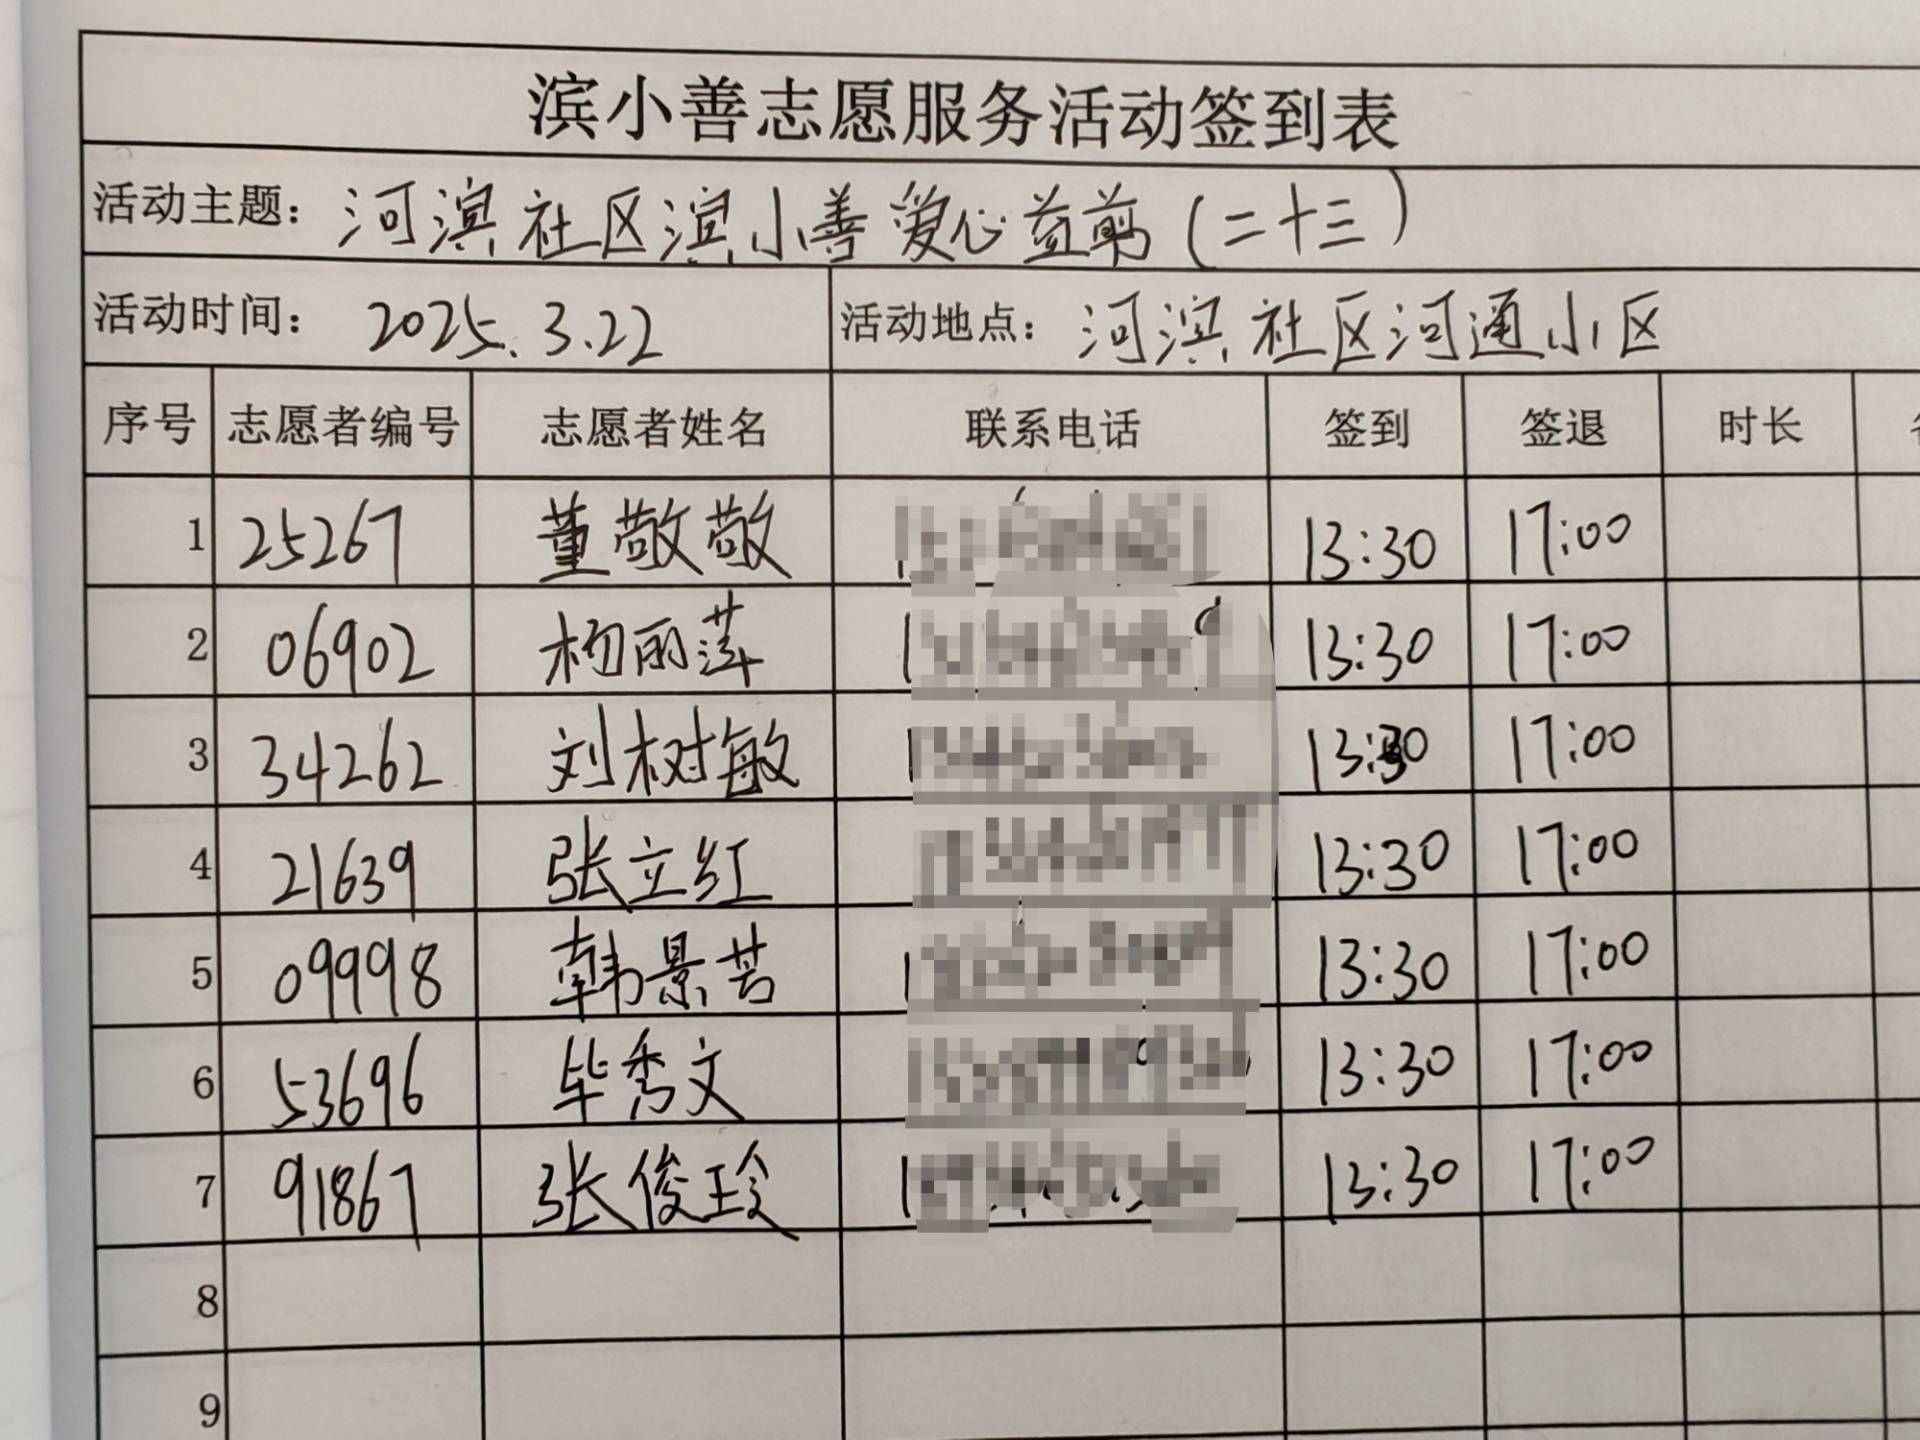 滨小善志愿服务活动签到表
活动主题：河滨社区滨小善爱心益剪（二十三）
活动时间：2025.3.22 活动地点：河滨社区河通小区
序号 志愿者编号 志愿者姓名 联系电话 签到 签退 时长
1 25267 董敬敬 13:30 17:00
2 06902 杨丽萍 13:30 17:00
3 34262 刘树敏 13:30 17:00
4 21639 张立红 13:30 17:00
5 09998 韩景芸 13:30 17:00
6 53696 毕秀文 13:30 17:00
7 91867 张俊玲 13:30 17:00
8
9